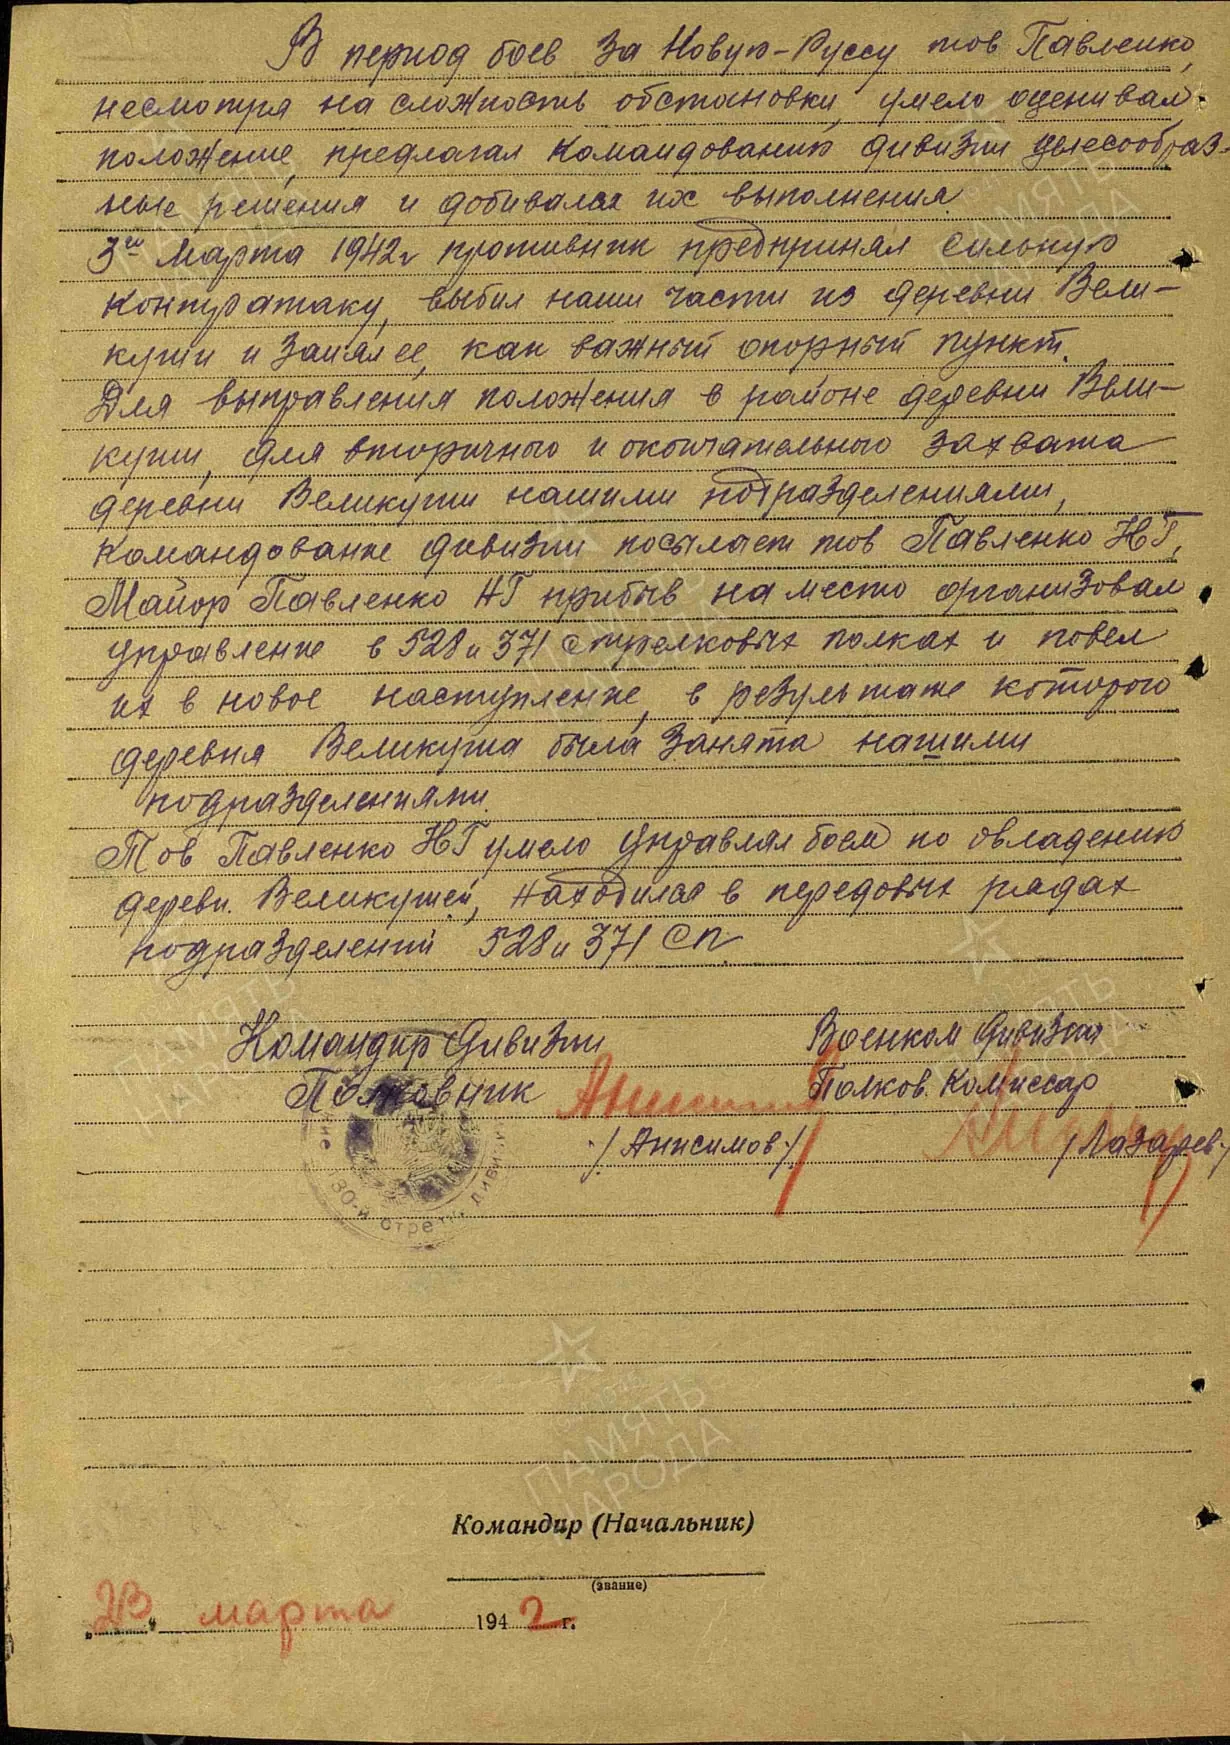 В период боев за Новую-Руссу тов Павленко,
несмотря на сложность обстановки, умело оценивал
положение, предлагал командованию дивизии целесообраз-
ные решения и добивался их выполнения
3го марта 1942г противник предпринял сильную
контратаку, выбил наши части из деревни Вели-
куши и занял ее, как важный опорный пункт.
Для выправления положения в районе деревни Вели-
куши, для вторичного и окончательного захвата
деревни Великуши нашими подразделениями,
командование дивизии посылает тов Павленко НГ,
Майор Павленко НГ прибыв на место организовал
управление в 528 и 371 стрелковых полках и повел
их в новое наступление, в результате которого
деревня Великуша была занята нашими
подразделениями.
Тов Павленко НГ умело управлял боем по овладению
деревн. Великушей, находился в передовых рядах
подразделений 528 и 371 СП.
Командир Дивизии Военком Дивизии
Полковник Полков. Комиссар
/Анисимов/ /Лазарев/
30-й стрелк. дивиз
Командир (Начальник)
(звание)
„23“ марта 1942 г.
ПАМЯТЬ
НАРОДА